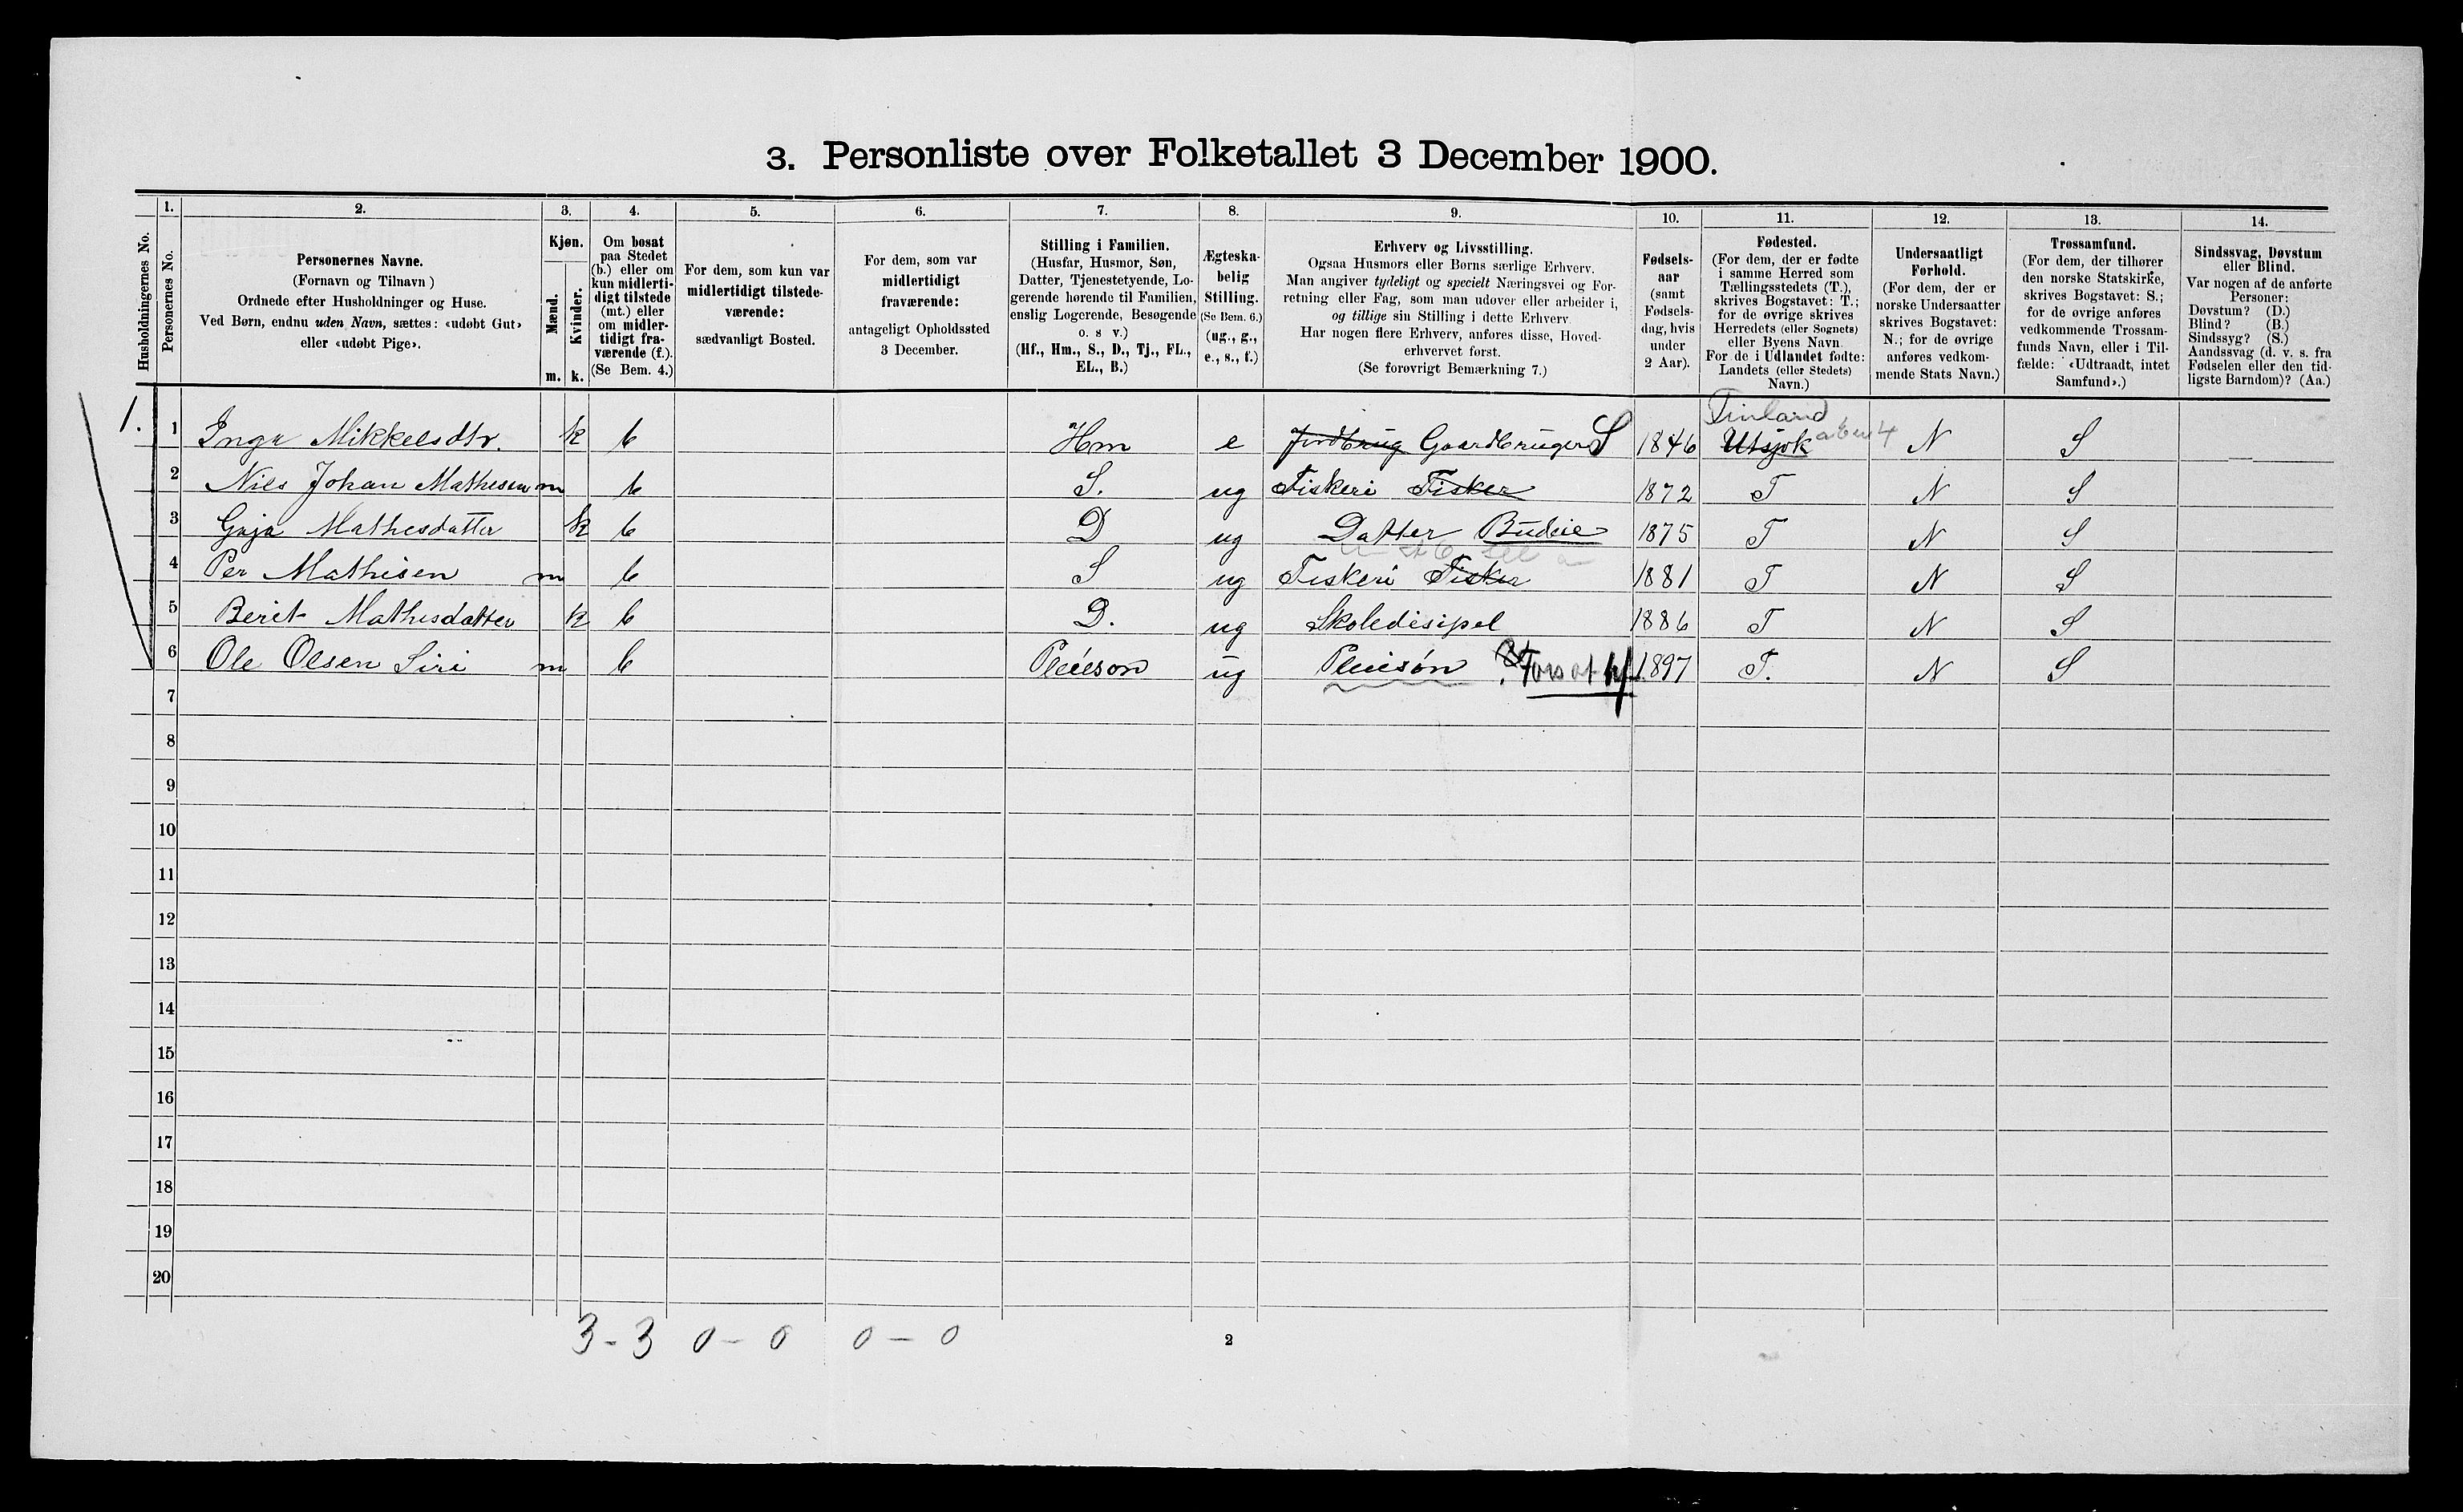 3. Personliste over Folketallet 3 December 1900.
Husholdningernes No.
1.
Personernes No.
2.
Personernes Navne.
(Fornavn og Tilnavn)
Ordnede efter Husholdninger og Huse.
Ved Børn, endnu uden Navn, sættes: «udøbt Gut»
eller «udøbt Pige».
3.
Kjøn.
Mænd.
Kvinder.
m. k.
4.
Om bosat
paa Stedet
(b.) eller om
kun midlerti-
digt tilstede
(mt.) eller
om midler-
tidigt fra-
værende (f.).
(Se Bem. 4.)
5.
For dem, som kun var
midlertidigt tilstede-
værende:
sædvanligt Bosted.
6.
For dem, som var
midlertidigt
fraværende:
antageligt Opholdssted
3 December.
7.
Stilling i Familien.
(Husfar, Husmor, Søn,
Datter, Tjenestetyende, Lo-
gerende hørende til Familien,
enslig Logerende, Besøgende
o. s v.)
(Hf., Hm., S., D., Tj., FL.,
EL., B.)
8.
Ægteska-
belig
Stilling.
(Se Bem. 6.)
(ug., g.,
e., s., f.)
9.
Erhverv og Livsstilling.
Ogsaa Husmors eller Børns særlige Erhverv.
Man angiver tydeligt og specielt Næringsvei og For-
retning eller Fag, som man udøver eller arbeider i,
og tillige sin Stilling i dette Erhverv.
Har nogen flere Erhverv, anføres disse, Hoved-
erhvervet først.
(Se forøvrigt Bemærkning 7.)
10.
Fødsels-
aar
(samt
Fødsels-
dag, hvis
under
2 Aar).
11.
Fødested.
(For dem, der er fødte
i samme Herred som
Tællingsstedets (T.),
skrives Bogstavet: T.;
for de øvrige skrives
Herredets (eller Sognets)
eller Byens Navn.
For de i Udlandet fødte:
Landets (eller Stedets)
Navn.)
12.
Undersaatligt
Forhold.
(For dem, der er
norske Undersaatter
skrives Bogstavet:
N.; for de øvrige
anføres vedkom-
mende Stats Navn.)
13.
Trossamfund.
(For dem, der tilhører
den norske Statskirke,
skrives Bogstavet: S.;
for de øvrige anføres
vedkommende Trossam-
funds Navn, eller i Til-
fælde: «Udtraadt, intet
Samfund».)
14.
Sindssvag, Døvstum
eller Blind.
Var nogen af de anførte
Personer:
Døvstum? (D.)
Blind? (B.)
Sindssyg? (S.)
Aandssvag (d. v. s. fra
Fødselen eller den tid-
ligste Barndom)? (Aa.)
Finland
1. 1 Inga Mikkelsdtr. k b Hm e Jordbrug Gaardbruger S 1846 Utsjok N S
2 Nils Johan Mathesen m b S. ug Fiskeri Fisker 1872 T N S
3 Gaja Mathesdatter k b D ug Datter Budeie 1875 T N S
4 Per Mathisen m b S ug Fiskeri Fisker 1881 T N S
5 Berit Mathisdatter k b D. ug Skoledisipel 1886 T N S
6 Ole Olsen Siri m b Pleieson ug Pleiesøn 1897 T. N S
7
8
9
10
11
12
13
14
15
16
17
18
19
20
3 - 3 0 - 0 0 - 0
2